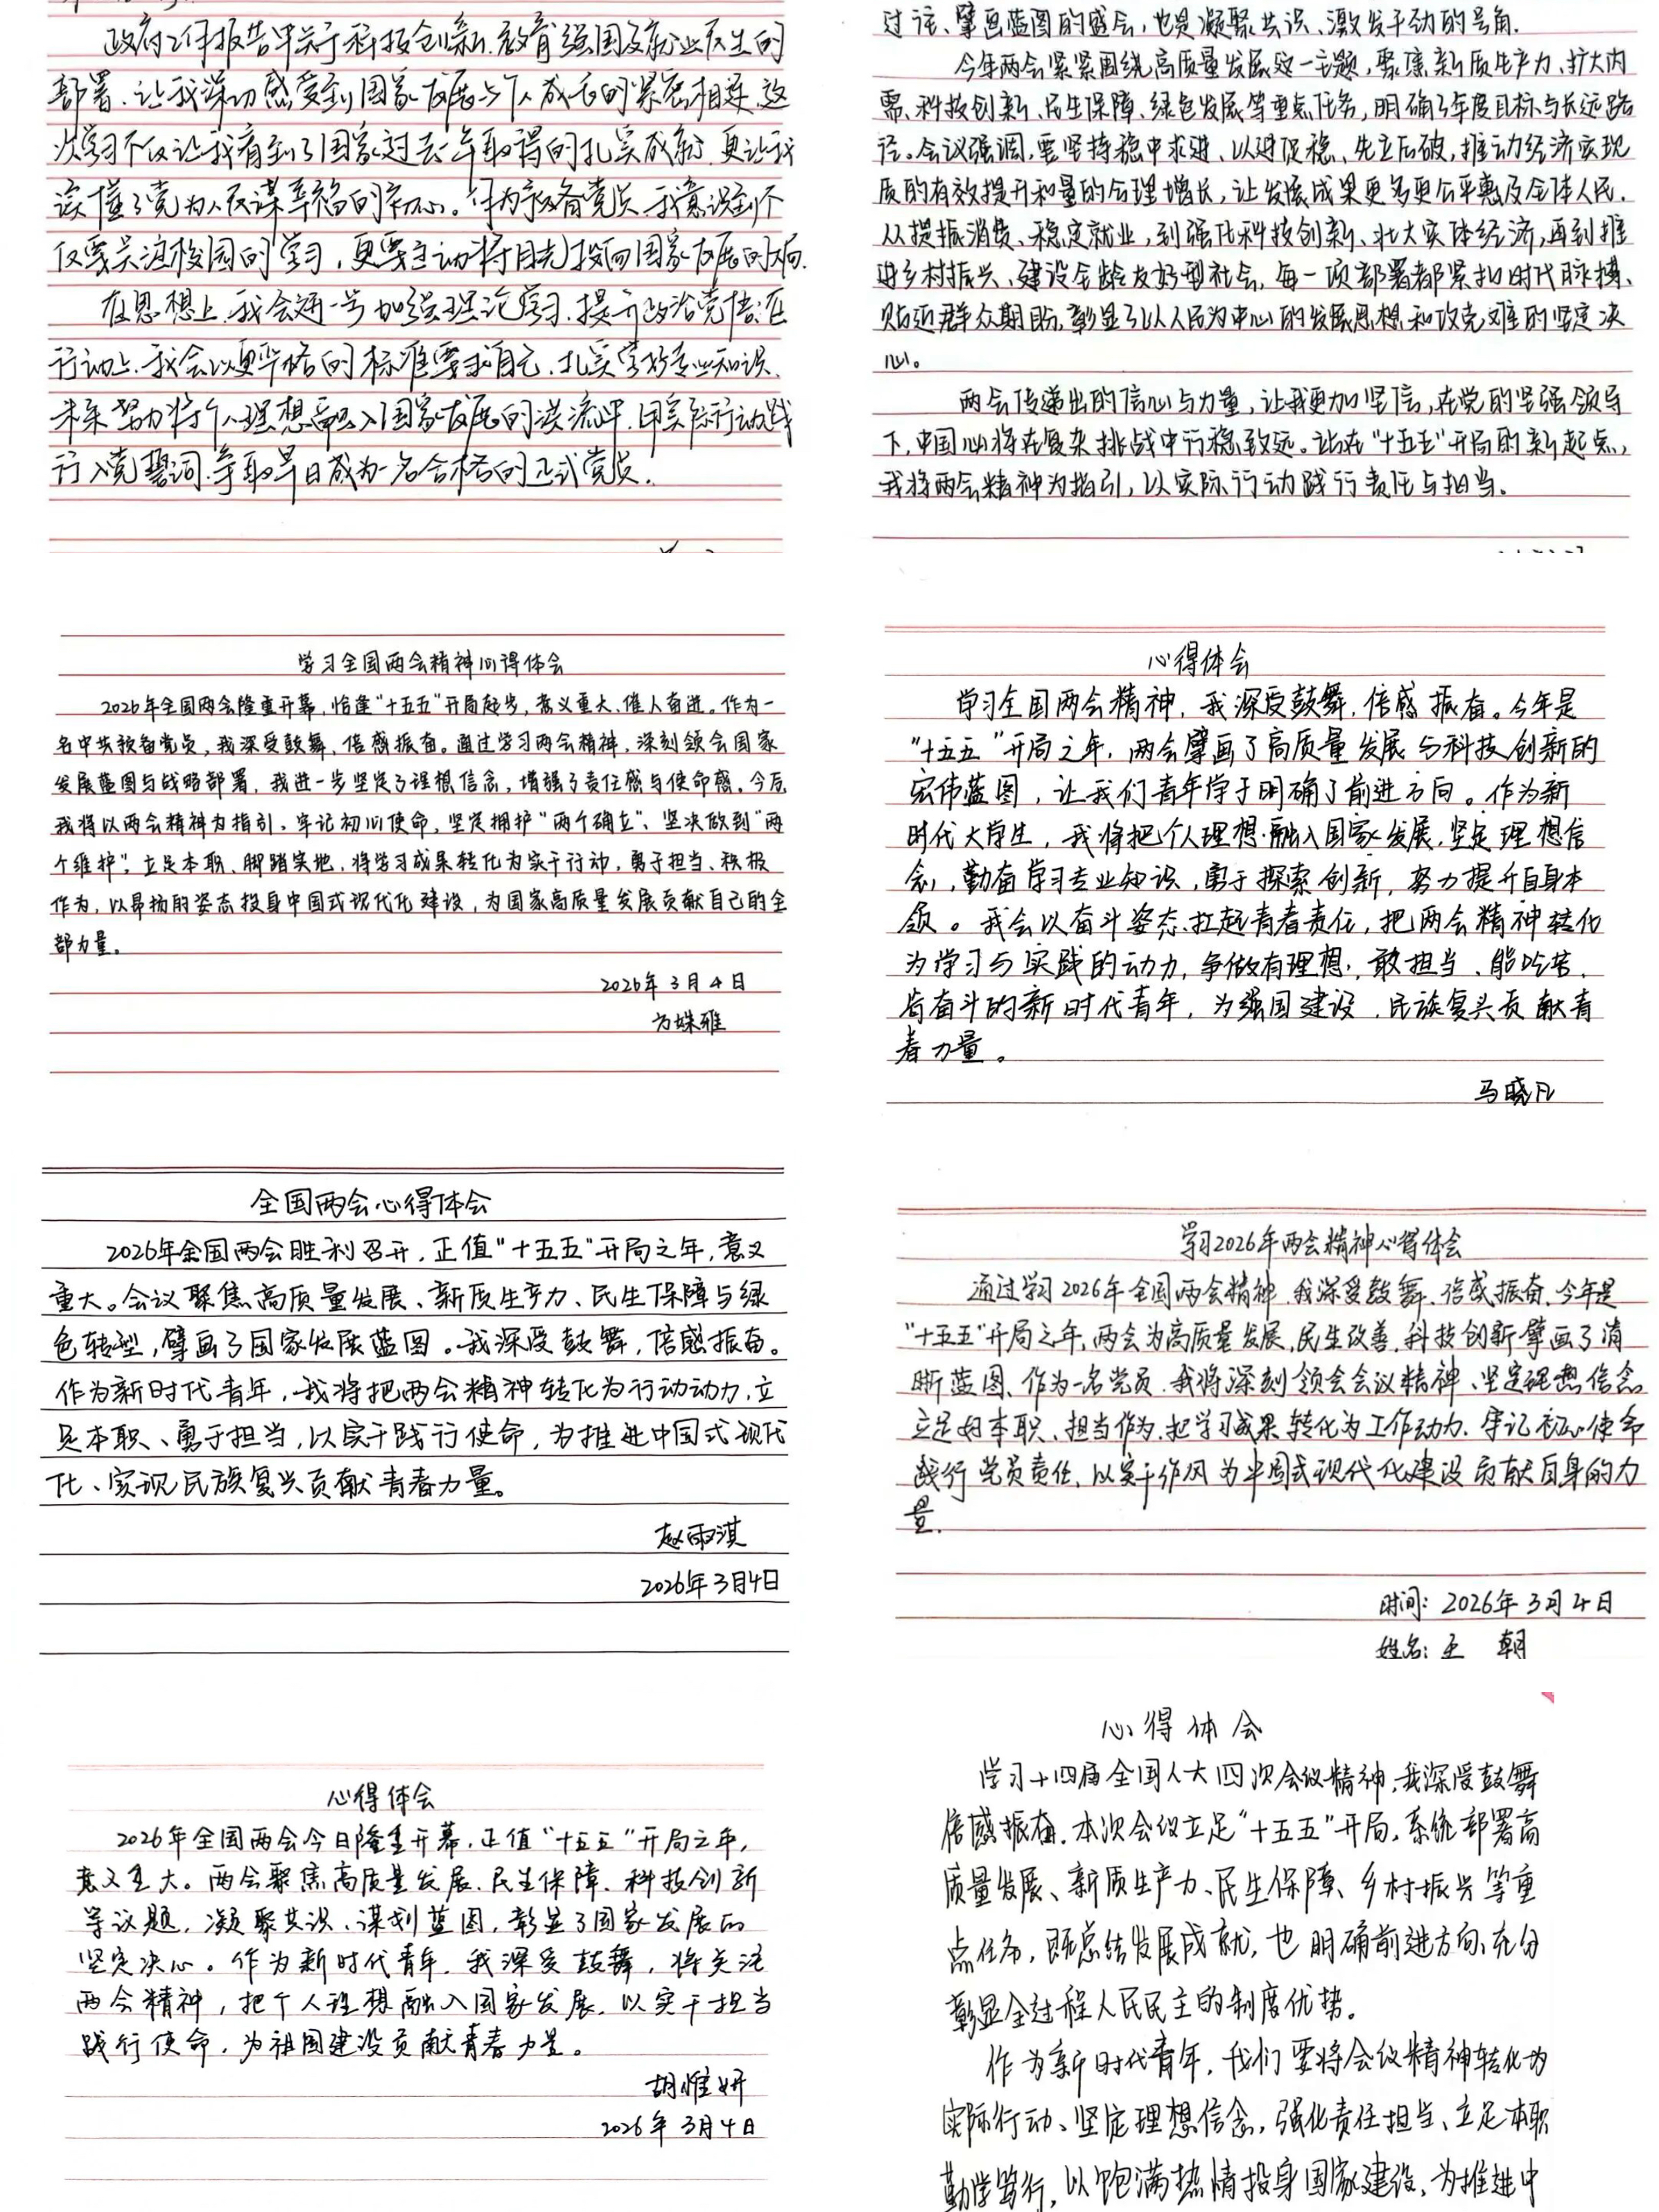 政府工作报告中关于科技创新、教育强国及就业民生的
部署、让我深切感受到国家发展与个人成长的紧密相连。这
次学习不仅让我看到了国家过去一年取得的扎实成就,更让我
读懂了党为人民谋幸福的初心。作为预备党员,我意识到不
仅要关注校园的学习,更要主动将目光投向国家发展的大局.
在思想上,我会进一步加强理论学习,提升政治觉悟;在
行动上,我会以更严格的标准要求自己,扎实学好专业知识、
未来努力将个人理想融入国家发展的洪流中,用实际行动践
行入党誓词,争取早日成为一名合格的正式党员.
过往、擘画蓝图的盛会,也是凝聚共识、激发干劲的号角.
今年两会紧紧围绕高质量发展这一主题,聚焦新质生产力、扩大内
需、科技创新、民生保障、绿色发展等重点任务,明确了年度目标与长远路
径。会议强调,要坚持稳中求进、以进促稳、先立后破,推动经济实现
质的有效提升和量的合理增长,让发展成果更多更公平惠及全体人民.
从提振消费、稳定就业,到强化科技创新、壮大实体经济,再到推
进乡村振兴、建设全龄友好型社会,每一项部署都紧扣时代脉搏、
贴近群众期盼,彰显了以人民为中心的发展思想和攻克难的坚定决
心。
两会传递出的信心与力量,让我更加坚信,在党的坚强领导
下,中国必将在复杂挑战中行稳致远。站在"十五五"开局的新起点,
我将两会精神为指引,以实际行动践行责任与担当。
学习全国两会精神心得体会
2026年全国两会隆重开幕,恰逢"十五五"开局起步,意义重大、催人奋进。作为一
名中共预备党员,我深受鼓舞、倍感振奋。通过学习两会精神,深刻领会国家
发展蓝图与战略部署,我进一步坚定了理想信念,增强了责任感与使命感。今后,
我将以两会精神为指引,牢记初心使命,坚定拥护"两个确立"、坚决做到"两
个维护",立足本职、脚踏实地,将学习成果转化为实干行动,勇于担当、积极
作为,以昂扬的姿态投身中国式现代化建设,为国家高质量发展贡献自己的全
部力量。
2026年3月4日
方姝雅
心得体会
学习全国两会精神,我深受鼓舞,倍感振奋。今年是
"十五五"开局之年,两会擘画了高质量发展与科技创新的
宏伟蓝图,让我们青年学子明确了前进方向。作为新
时代大学生,我将把个人理想融入国家发展,坚定理想信
念,勤奋学习专业知识,勇于探索创新,努力提升自身本
领。我会以奋斗姿态扛起青春责任,把两会精神转化
为学习与实践的动力,争做有理想、敢担当、能吃苦、
肯奋斗的新时代青年,为强国建设、民族复兴贡献青
春力量。
马晓凡
全国两会心得体会
2026年全国两会胜利召开,正值"十五五"开局之年,意义
重大。会议聚焦高质量发展、新质生产力、民生保障与绿
色转型,擘画了国家发展蓝图。我深受鼓舞,倍感振奋。
作为新时代青年,我将把两会精神转化为行动动力,立
足本职、勇于担当,以实干践行使命,为推进中国式现代
化、实现民族复兴贡献青春力量。
赵雨淇
2026年3月4日
学习2026年两会精神心得体会
通过学习2026年全国两会精神,我深受鼓舞、倍感振奋,今年是
"十五五"开局之年,两会为高质量发展,民生改善,科技创新擘画了清
晰蓝图、作为一名党员,我将深刻领会会议精神、坚定理想信念
立足好本职、担当作为,把学习成果转化为工作动力,牢记初心使命
践行党员责任,以实干作风为中国式现代化建设贡献自身的力
量.
时间:2026年3月4日
姓名:王 朝
心得体会
2026年全国两会今日隆重开幕,正值"十五五"开局之年,
意义重大。两会聚焦高质量发展、民生保障、科技创新
等议题,凝聚共识、谋划蓝图,彰显了国家发展的
坚定决心。作为新时代青年,我深受鼓舞,将关注
两会精神,把个人理想融入国家发展,以实干担当
践行使命,为祖国建设贡献青春力量。
胡惟妍
2026年3月4日
心得体会
学习十四届全国人大四次会议精神,我深受鼓舞
倍感振奋.本次会议立足"十五五"开局,系统部署高
质量发展、新质生产力、民生保障、乡村振兴等重
点任务,既总结发展成就,也明确前进方向,充分
彰显全过程人民民主的制度优势。
作为新时代青年,我们要将会议精神转化为
实际行动、坚定理想信念,强化责任担当、立足本职
勤学笃行,以饱满热情投身国家建设,为推进中